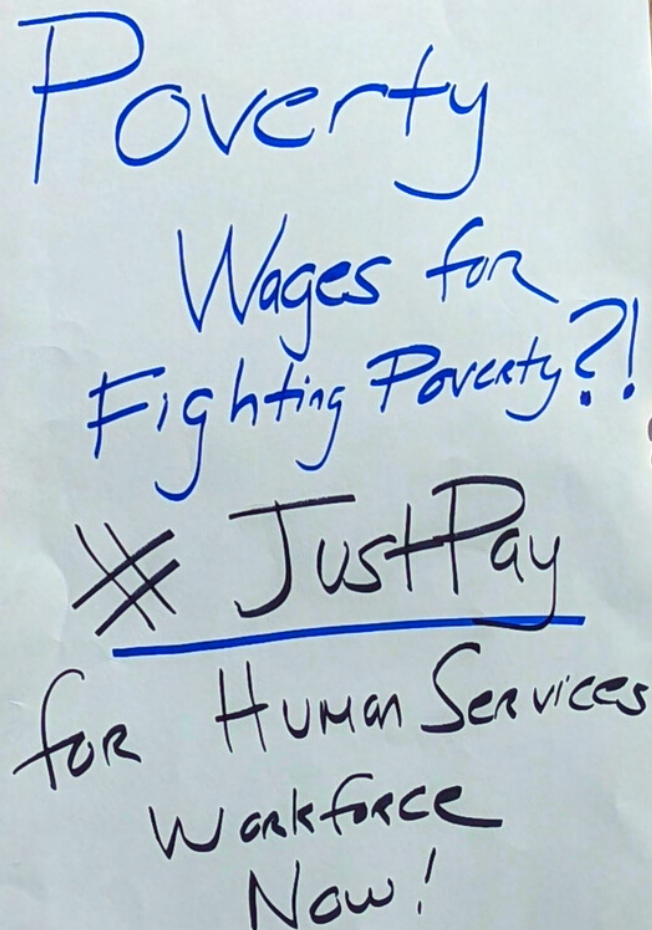 Poverty
Wages for
Fighting Poverty?!
# JustPay
for Human Services
Workforce
Now!